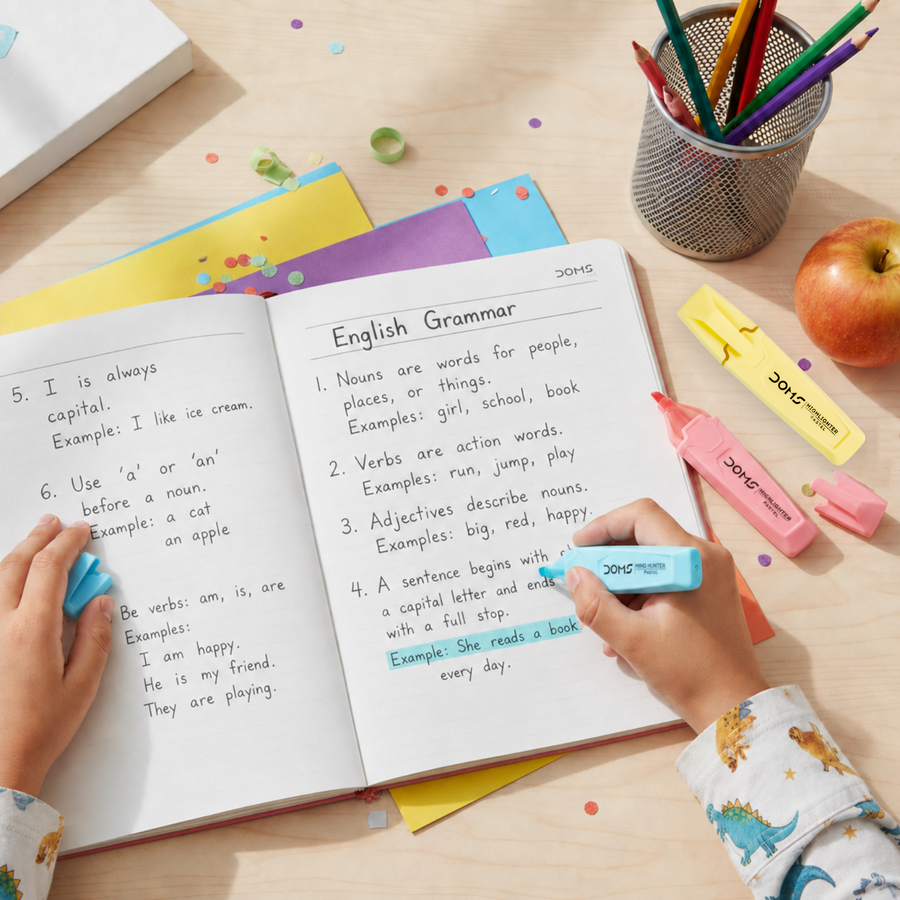 5. I is always
capital.
Example: I like ice cream.
6. Use 'a' or 'an'
before a noun.
Example: a cat
an apple
Be verbs: am, is, are
Examples:
I am happy.
He is my friend.
They are playing.
DOMS
English Grammar
1. Nouns are words for people,
places, or things.
Examples: girl, school, book
2. Verbs are action words.
Examples: run, jump, play
3. Adjectives describe nouns.
Examples: big, red, happy.
4. A sentence begins with
a capital letter and ends
with a full stop.
Example: She reads a book
every day.
DOMS HIGHLIGHTER
PASTEL
DOMS HIGHLIGHTER
PASTEL
DOMS
PASTEL